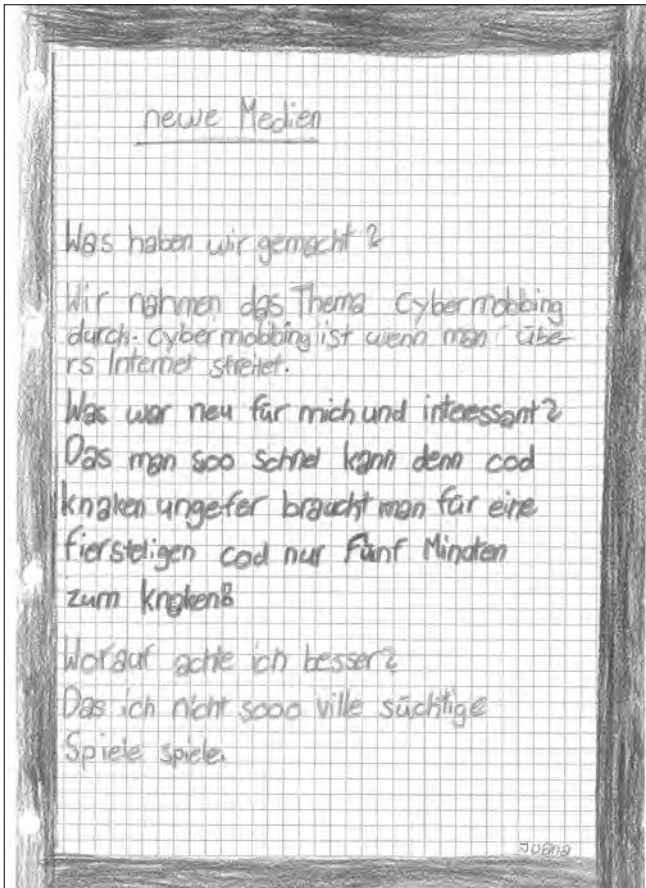 newe Medien
Was haben wir gemacht?
Wir nahmen das Thema Cybermobbing
durch. Cybermobbing ist wenn man übe-
rs Internet streitet.
Was war neu für mich und interessant?
Das man soo schnel kann denn cod
knaken ungefer braucht man für eine
fiersteligen cod nur Fünf Minoten
zum knaken
Worauf achte ich besser?
Das ich nicht sooo ville süchtige
Spiele spiele.
Joana